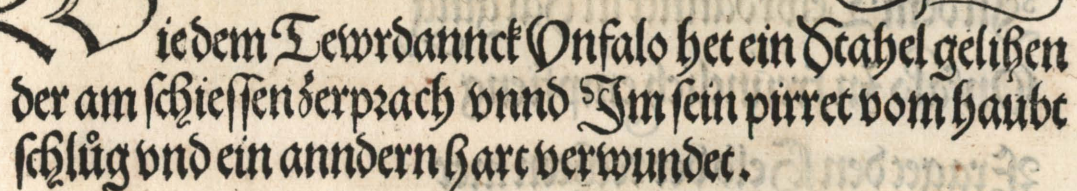 Wie dem Tewrdannck Vnfalo het ein Stahel gelihen
der am schiessen zerprach vnnd Im sein pirret vom haubt
schlůg vnd ein anndern hart verwundet.